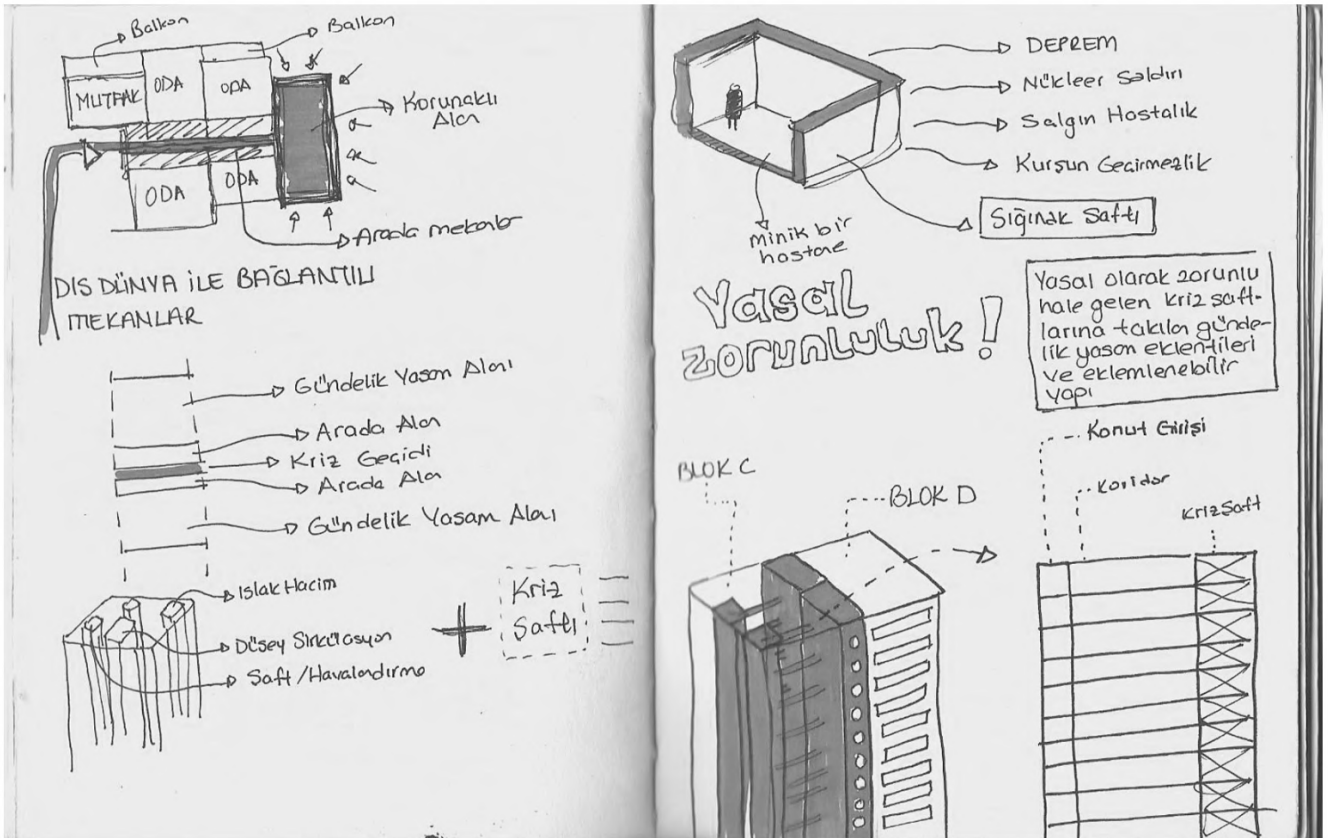 Balkon
Balkon
MUTFAK
ODA
ODA
Korunaklı
Alan
ODA
ODA
Arada mekanlar
DIS DÜNYA İLE BAĞLANTILI
MEKANLAR
Gündelik Yasam Alanı
Arada Alan
Kriz Geçidi
Arada Alan
Gündelik Yasam Alanı
Islak Hacim
Düsey Sirkülasyon
Saft / Havalandırma
+
Kriz
Saftı
DEPREM
Nükleer Saldırı
Salgın Hastalık
Kursun Geçirmezlik
Sığınak Saftı
minik bir
hastane
Yasal
zorunluluk!
Yasal olarak zorunlu
hale gelen kriz saft-
larına takılan günde-
lik yasam eklentileri
ve eklemlenebilir
yapı
Konut Girişi
Koridor
Kriz Saft
BLOK C
BLOK D